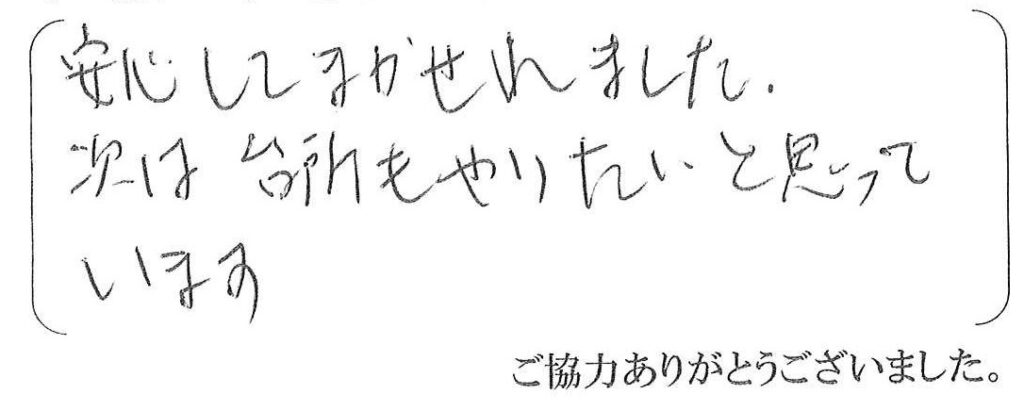 安心してまかせれました.
次は台所もやりたいと思って
います
ご協力ありがとうございました。